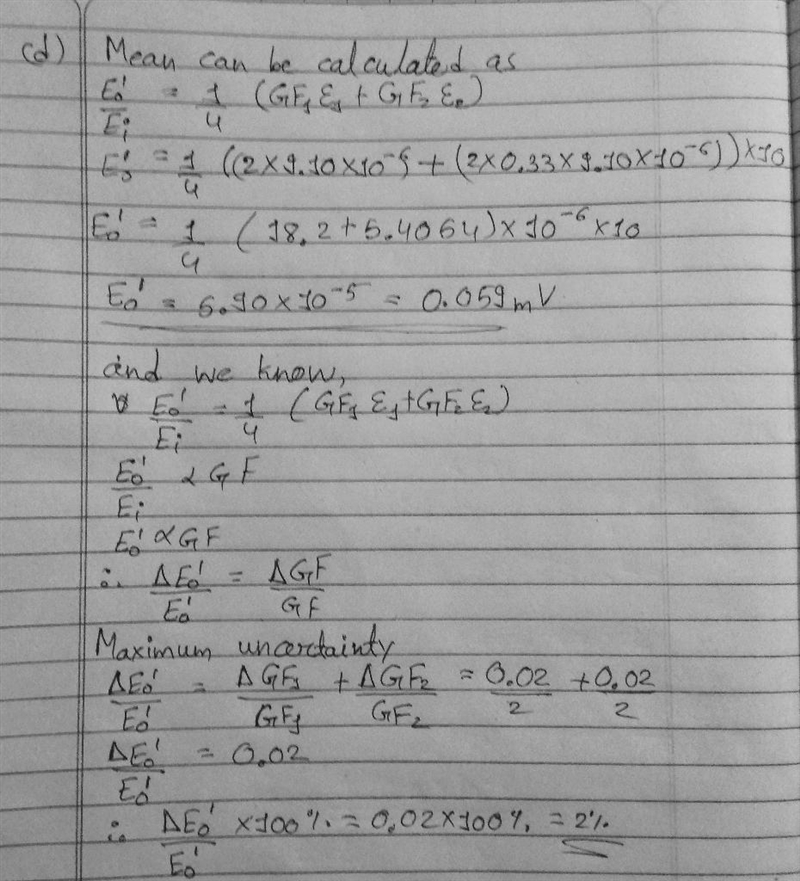 (d) Mean can be calculated as
E₀' / Eᵢ = 1/4 (GF₁ ε₁ + GF₂ ε₂)
E₀' = 1/4 ((2×9.10×10⁻⁶) + (2×0.33×9.10×10⁻⁶))×10
E₀' = 1/4 (18.2+5.4054)×10⁻⁶×10
E₀' = 5.90×10⁻⁵ = 0.059 mV
and we know,
E₀' / Eᵢ = 1/4 (GF₁ ε₁+GF₂ ε₂)
E₀' / Eᵢ ∝ GF
E₀' ∝ GF
∴ ΔE₀' / E₀' = ΔGF / GF
Maximum uncertainty
ΔE₀' / E₀' = ΔGF₁ / GF₁ + ΔGF₂ / GF₂ = 0.02/2 + 0.02/2
ΔE₀' / E₀' = 0.02
∴ ΔE₀' / E₀' ×100% = 0.02×100% = 2%